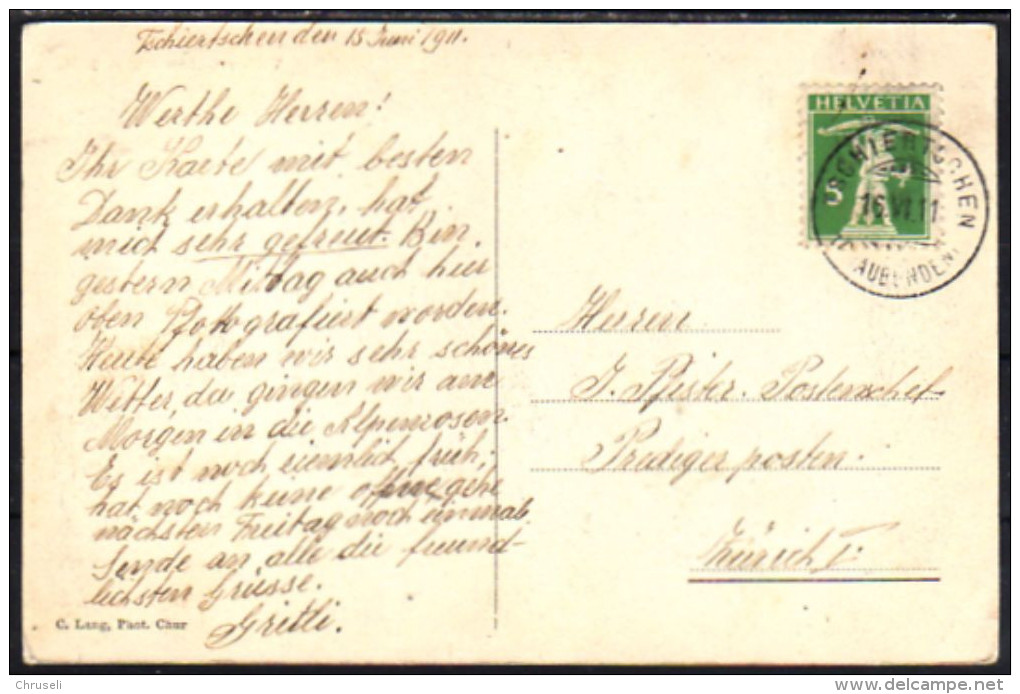 Tschiertschen den 15 Juni 1911.
Werthe Herren!
Ihr Karte mit besten
Dank erhalten, hat
mich sehr gefreut. Bin
gestern Mittag auch hier
oben Photografiert worden.
Heute haben wir sehr schönes
Wetter, da gingen wir am
Morgen in die Alpenrosen
Es ist noch ziemlich früh,
hat noch keine offene gehe
nächsten Freitag noch einmal
Sende an alle die freund-
lichsten Grüsse.
Gritli.
C. Lang, Phot. Chur
HELVETIA
5
TSCHIERTSCHEN
16.VI.11
(GRAUBÜNDEN)
Herren
J. Pfister. Postenchef
Predigerposten.
Zürich I.
Chruseli
delcampe.net